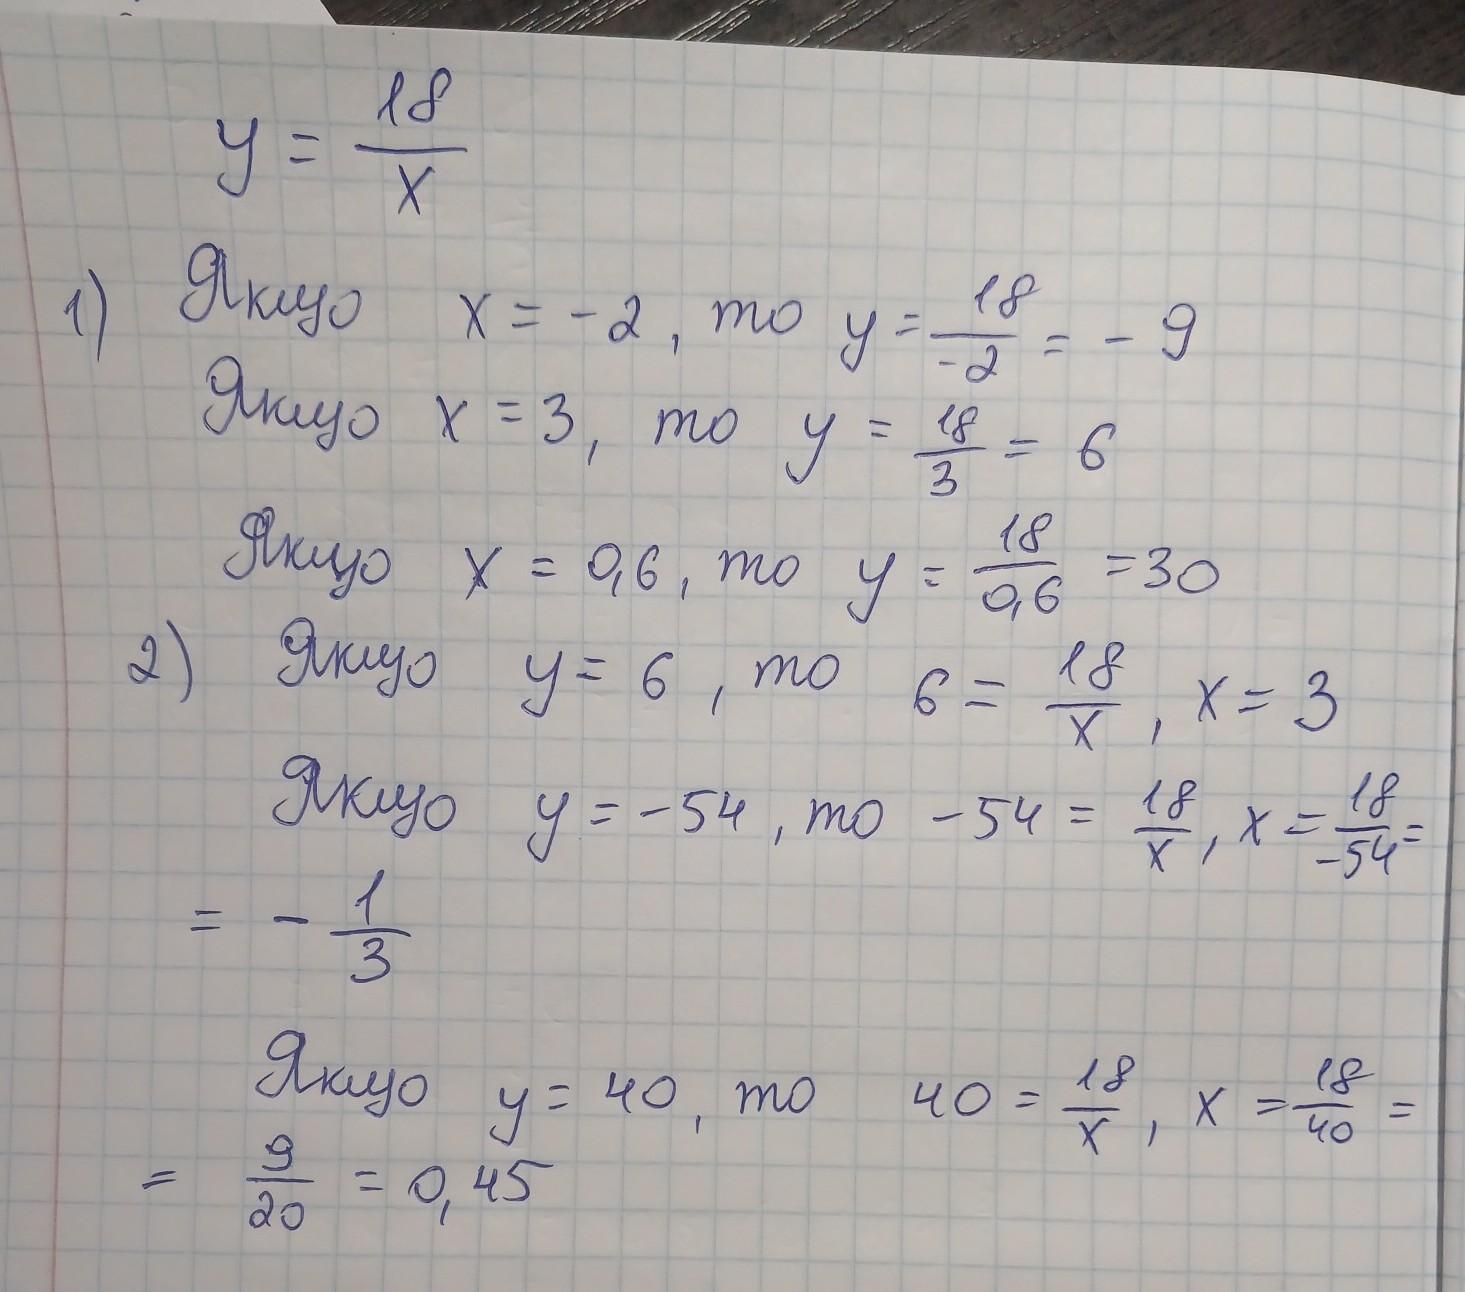 y = 18/x
1) Якщо x = -2, то y = 18/-2 = - 9
Якщо x = 3, то y = 18/3 = 6
Якщо x = 0,6, то y = 18/0,6 = 30
2) Якщо y = 6, то 6 = 18/x, x = 3
Якщо y = -54, то -54 = 18/x, x = 18/-54 =
= - 1/3
Якщо y = 40, то 40 = 18/x, x = 18/40 =
= 9/20 = 0,45